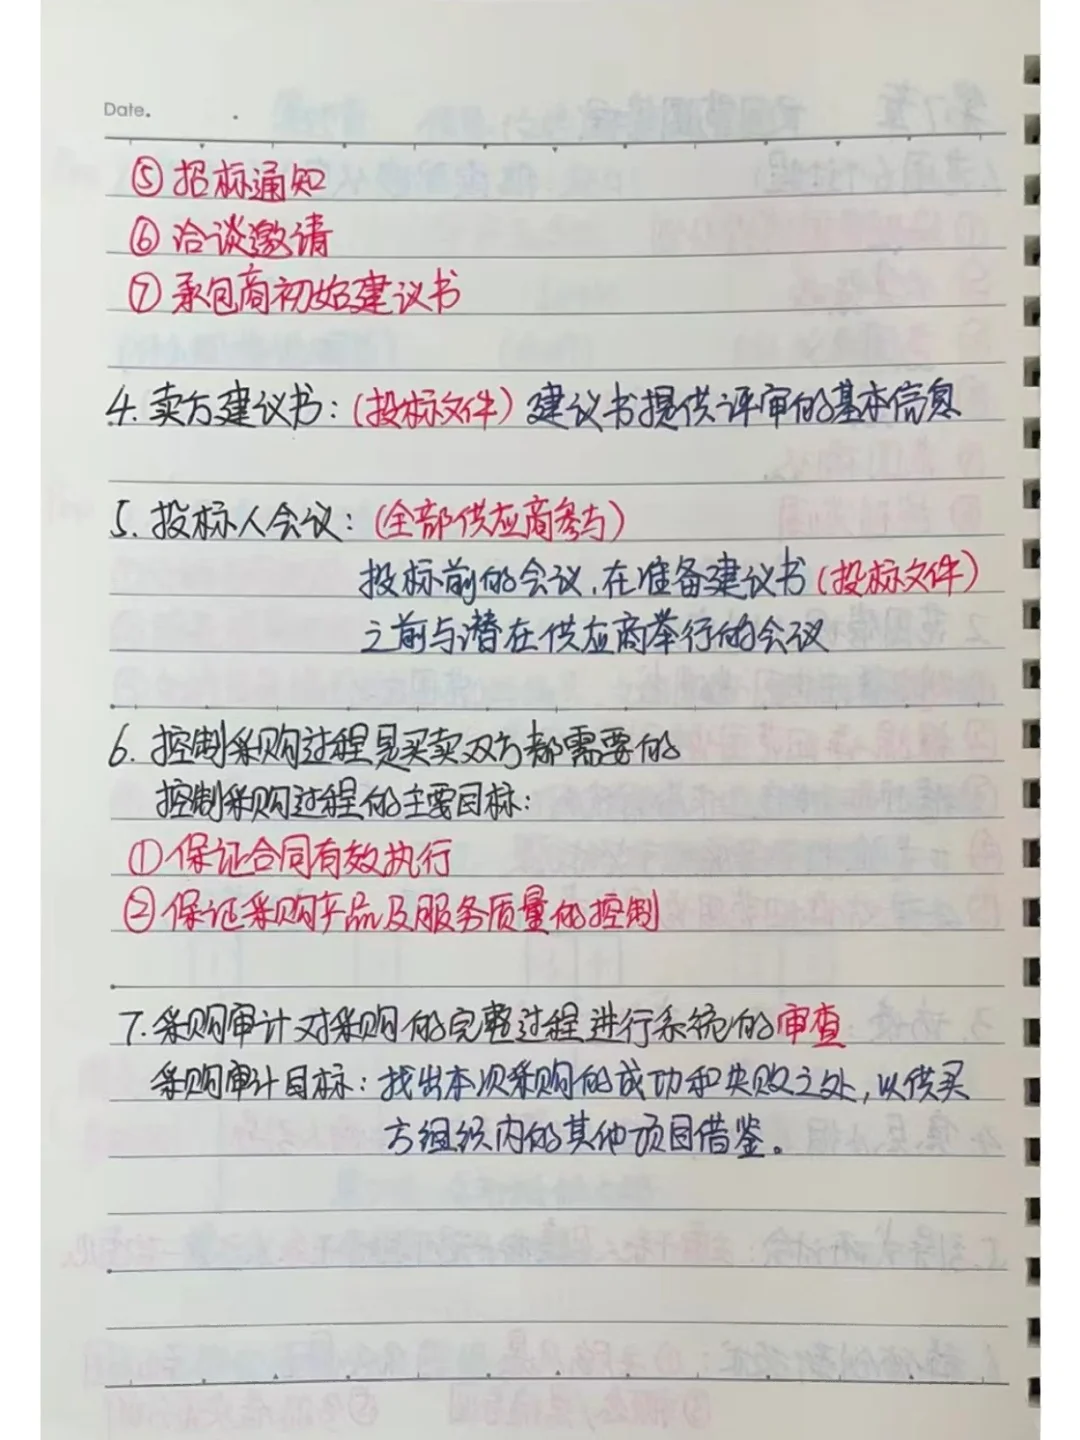 Date.
⑤招标通知
⑥洽谈邀请
⑦承包商初始建议书
4.卖方建议书：(投标文件)建议书提供评审的基本信息
5.投标人会议：(全部供应商参与)
投标前的会议,在准备建议书(投标文件)
之前与潜在供应商举行的会议
6.控制采购过程是买卖双方都需要的
控制采购过程的主要目标：
①保证合同有效执行
②保证采购产品及服务质量的控制
7.采购审计对采购的完整过程进行系统的审查
采购审计目标：找出本次采购的成功和失败之处,以供买
方组织内的其他项目借鉴。